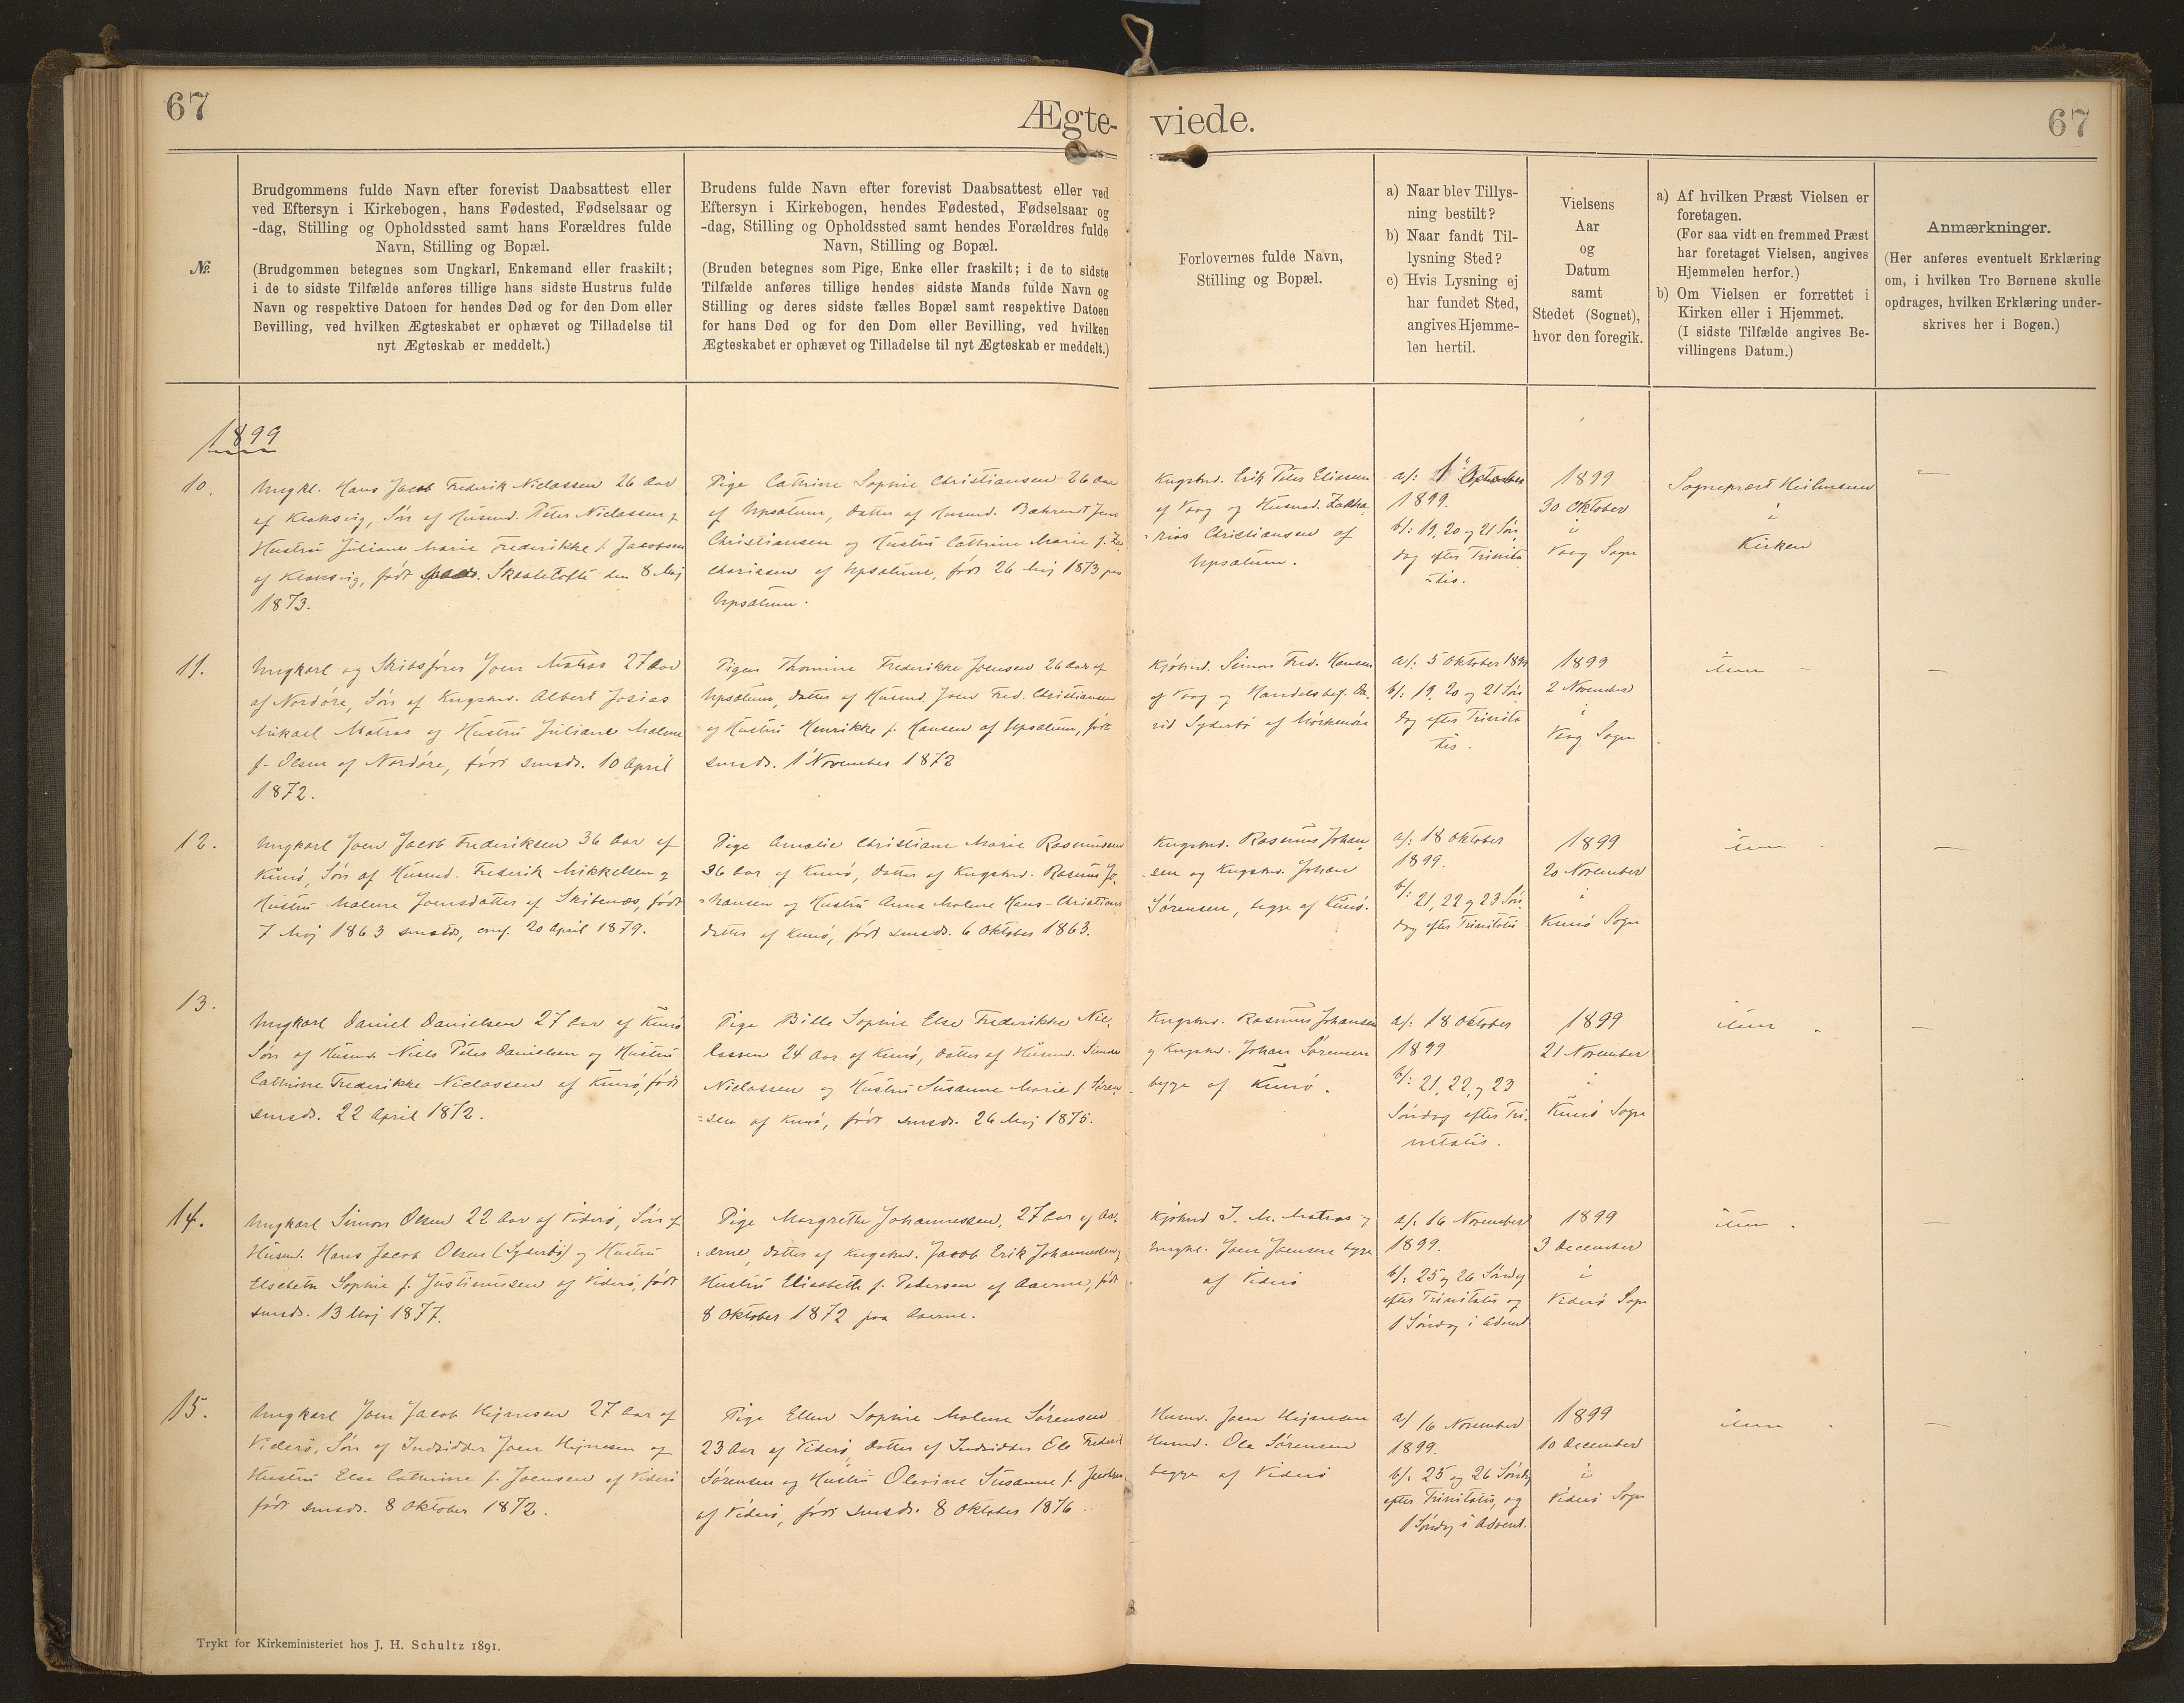 67
Ægte-
viede.
67
№.
Brudgommens fulde Navn efter forevist Daabsattest eller
ved Eftersyn i Kirkebogen, hans Fødested, Fødselsaar og
-dag, Stilling og Opholdssted samt hans Forældres fulde
Navn, Stilling og Bopæl.
(Brudgommen betegnes som Ungkarl, Enkemand eller fraskilt;
i de to sidste Tilfælde anføres tillige hans sidste Hustrus fulde
Navn og respektive Datoen for hendes Død og for den Dom eller
Bevilling, ved hvilken Ægteskabet er ophævet og Tilladelse til
nyt Ægteskab er meddelt.)
Brudens fulde Navn efter forevist Daabsattest eller ved
Eftersyn i Kirkebogen, hendes Fødested, Fødselsaar og
-dag, Stilling og Opholdssted samt hendes Forældres fulde
Navn, Stilling og Bopæl.
(Bruden betegnes som Pige, Enke eller fraskilt; i de to sidste
Tilfælde anføres tillige hendes sidste Mands fulde Navn og
Stilling og deres sidste fælles Bopæl samt respektive Datoen
for hans Død og for den Dom eller Bevilling, ved hvilken
Ægteskabet er ophævet og Tilladelse til nyt Ægteskab er meddelt.)
Forlovernes fulde Navn,
Stilling og Bopæl.
a) Naar blev Tillys-
ning bestilt?
b) Naar fandt Til-
lysning Sted?
c) Hvis Lysning ej
har fundet Sted,
angives Hjemme-
len hertil.
Vielsens
Aar
og
Datum
samt
Stedet (Sognet),
hvor den foregik.
a) Af hvilken Præst Vielsen er
foretagen.
(For saa vidt en fremmed Præst
har foretaget Vielsen, angives
Hjemmelen herfor.)
b) Om Vielsen er forrettet i
Kirken eller i Hjemmet.
(I sidste Tilfælde angives Be-
villingens Datum.)
Anmærkninger.
(Her anføres eventuelt Erklæring
om, i hvilken Tro Børnene skulle
opdrages, hvilken Erklæring under-
skrives her i Bogen.)
1899
10.
Ungkl. Hans Jacob Frederik Niclassen 26 Aar
af Klaksvig, Søn af Husmd. Peter Niclassen og
Hustru Juliane Marie Frederikke f. Jacobsen
af Klaksvig, født Skaaletofte den 8 Maj
1873.
Pige Cathrine Sophie Christiansen 26 Aar
af Upsalum, Datter af Husmd. Jens
Christiansen og Hustru Cathrine Marie f. Za-
chariasen af Upsalum, født 26 Maj 1873 paa
Upsalum.
Kngsbd. Erik Peter Eliesen
af Vaag og Husmd. Zakka-
rias Christiansen af
Upsalum.
a/: 1 Oktober
1899.
b/: 19, 20 og 21 Søn-
dag efter Trinita-
tis.
1899
30 Oktober
i
Vaag Sogn
Sognepræst Heilmann
i
Kirken
—
11.
Ungkarl og Skibsfører Joen Matras 27 Aar
af Nordøre, Søn af Kngsbd. Albert Josias
Mikael Matras og Hustru Juliane Malene
f. Olsen af Nordøre, født smsds. 10 April
1872.
Pigen Thomine Frederikke Joensen 26 Aar af
Upsalum, Datter af Husmd. Joen Fred. Christiansen
og Hustru Henrikke f. Hansen af Upsalum, født
smsds. 1 November 1872
Kjøbmd. Simon Fred. Hansen
af Vaag og Handelsbef. Da-
vid Syderbø af Mørkenøre
a/: 5 Oktober 1899
b/: 19, 20 og 21 Søn-
dag efter Trinita-
tis.
1899
2 November
i
Vaag Sogn
item
—
12.
Ungkarl Joen Jacob Frederiksen 36 Aar af
Kunø, Søn af Husmd. Frederik Mikkelsen og
Hustru Malene Joensdatter af Skibenæs, født
7 Maj 1863 smstds, conf. 20 April 1879.
Pige Amalie Christiane Marie Rasmussen
36 Aar af Kunø, Datter af Kngsbd. Rasmus Jo-
hansen og Hustru Anna Malene Hans-Christians-
datter af Kunø, født smsds. 6 Oktober 1863.
Kngsbd. Rasmus Johan-
sen og Kngsbd. Johan
Sørensen, begge af Kunø.
a/: 18 Oktober
1899.
b/: 21, 22 og 23 Søn-
dag efter Trinitatis
1899
20 November
i
Kunø Sogn
item
—
13.
Ungkarl Daniel Danielsen 27 Aar af Kunø
Søn af Husmd. Niels Peter Danielsen og Hustru
Cathrine Frederikke Niclassen af Kunø, født
smsds. 22 April 1872.
Pige Bille Sophie Else Frederikke Nic-
lassen 24 Aar af Kunø, Datter af Husmd. Simon
Niclassen og Hustru Susanne Marie f. Søren-
sen af Kunø, født smsds. 26 Maj 1875.
Kngsbd. Rasmus Johansen
og Kngsbd. Johan Sørensen
begge af Kunø.
a/: 18 Oktober
1899
b/: 21, 22, og 23
Søndag efter Tri-
nitatis.
1899
21 November
i
Kunø Sogn
item
—
14.
Ungkarl Simon Olsen 22 Aar af Viderø, Søn af
Husmd. Hans Jacob Olsen (Syderbø) og Hustru
Elsebeth Sophie f. Justinussen af Viderø, født
smsds. 13 Maj 1877.
Pige Margrethe Johannessen, 27 Aar af Aa-
erne, Datter af Kngsbd. Jacob Erik Johannessen og
Hustru Elisabeth f. Pedersen af Aaerne, født
8 Oktober 1872 paa Aaerne.
Kjøbmd J. M. Matras og
Ungkl. Joen Joensen begge
af Viderø
a/: 16 November
1899.
b/: 25 og 26 Søndag
efter Trinitatis og
1 Søndag i Advent
1899
3 December
i
Viderø Sogn
item
—
15.
Ungkarl Joen Jacob Hejnesen 27 Aar af
Viderø, Søn af Indsidder Joen Hejnesen og
Hustru Else Cathrine f. Joensen af Viderø
født smsds. 8 Oktober 1872.
Pige Ellen Sophie Malene Sørensen
23 Aar af Viderø, Datter af Indsidder Ole Frederik
Sørensen og Hustru Olevine Susanne f. Jacobsen
af Viderø, født smsds. 8 Oktober 1876.
Husmd. Joen Hejnesen
Husmd. Ole Sørensen
begge af Viderø
a/ 16 November
1899.
b/: 25 og 26 Søndag
efter Trinitatis, og
1 Søndag i Advent.
1899
10 December
i
Viderø Sogn
item
—
Trykt for Kirkeministeriet hos J. H. Schultz 1891.